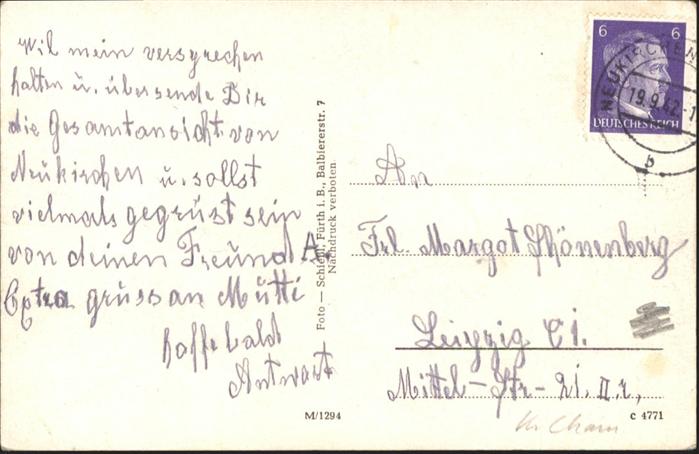 Wil mein versprechen
halten u. übersende Dir
die Gesamtansicht von
Neukirchen u. sollst
vielmals gegrüst sein
von deinen Freund A.
Extra grüss an Mutti
hoffe bald
Antwort
Foto — Schleißl, Fürth i. B., Balbiererstr. 7
Nachdruck verboten
6 6
DEUTSCHES REICH
NEUKIRCHEN
19.9.42-1
b
An
Frl. Margot Schönenberg
Leipzig C1.
Mittel-Str- 21. II. r,
M/1294
c 4771
Kr Cham